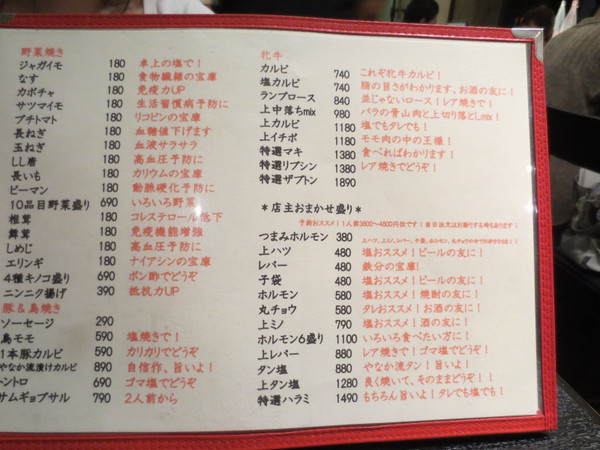 野菜焼き
ジャガイモ 180 卓上の塩で!
なす 180 食物繊維の宝庫
カボチャ 180 免疫力UP
サツマイモ 180 生活習慣病予防に
プチトマト 180 リコピンの宝庫
長ねぎ 180 血糖値下げます
玉ねぎ 180 血液サラサラ
しし唐 180 高血圧予防に
長いも 180 カリウムの宝庫
ピーマン 180 動脈硬化予防に
10品目野菜盛り 690 いろいろ野菜
椎茸 180 コレステロール低下
舞茸 180 免疫機能増強
しめじ 180 高血圧予防に
エリンギ 180 ナイアシンの宝庫
4種キノコ盛り 690 ポン酢でどうぞ
ニンニク揚げ 390 抵抗力UP
豚&鳥焼き
ソーセージ 290
鳥モモ 590 塩焼きで!
1本豚カルビ 690 カリカリでどうぞ
やなか流漬けカルビ 890 自信作、旨いよ!
トントロ 690 ゴマ塩でどうぞ
サムギョプサル 790 2人前から
牝牛
カルビ 740 これぞ牝牛カルビ!
塩カルビ 740 脂の旨さがわかります、お酒の友に!
ランプロース 840 並じゃないロース!レア焼きで!
上中落ちmix 980 バラの骨山肉と上切り落としmix!
上カルビ 1180 塩でもタレでも!
上イチボ 1180 モモ肉の中の王様!
特選マキ 1380 食べればわかります!
特選リブシン 1380 レア焼きでどうぞ!
特選ザブトン 1890
*店主おまかせ盛り*
予約おススメ!1人前3500~4500円位です!当日注文はお断りする時もあります!
つまみホルモン 380
上ハツ 480 塩おススメ!ビールの友に!
レバー 480 鉄分の宝庫!
子袋 480 塩おススメ!ビールの友に!
ホルモン 580 塩おススメ!焼酎の友に!
丸チョウ 580 タレおススメ!お酒の友に!
上ミノ 790 塩おススメ!酒の友に!
ホルモン6盛り 1100 いろいろ食べたい方に!
上レバー 880 レア焼きで!ゴマ塩でどうぞ!
タン塩 880 やなか流タン!旨い!
上タン塩 1280 良く焼いて、そのままどうぞ!!
特選ハラミ 1490 もちろん旨いよ!タレでも塩でも!